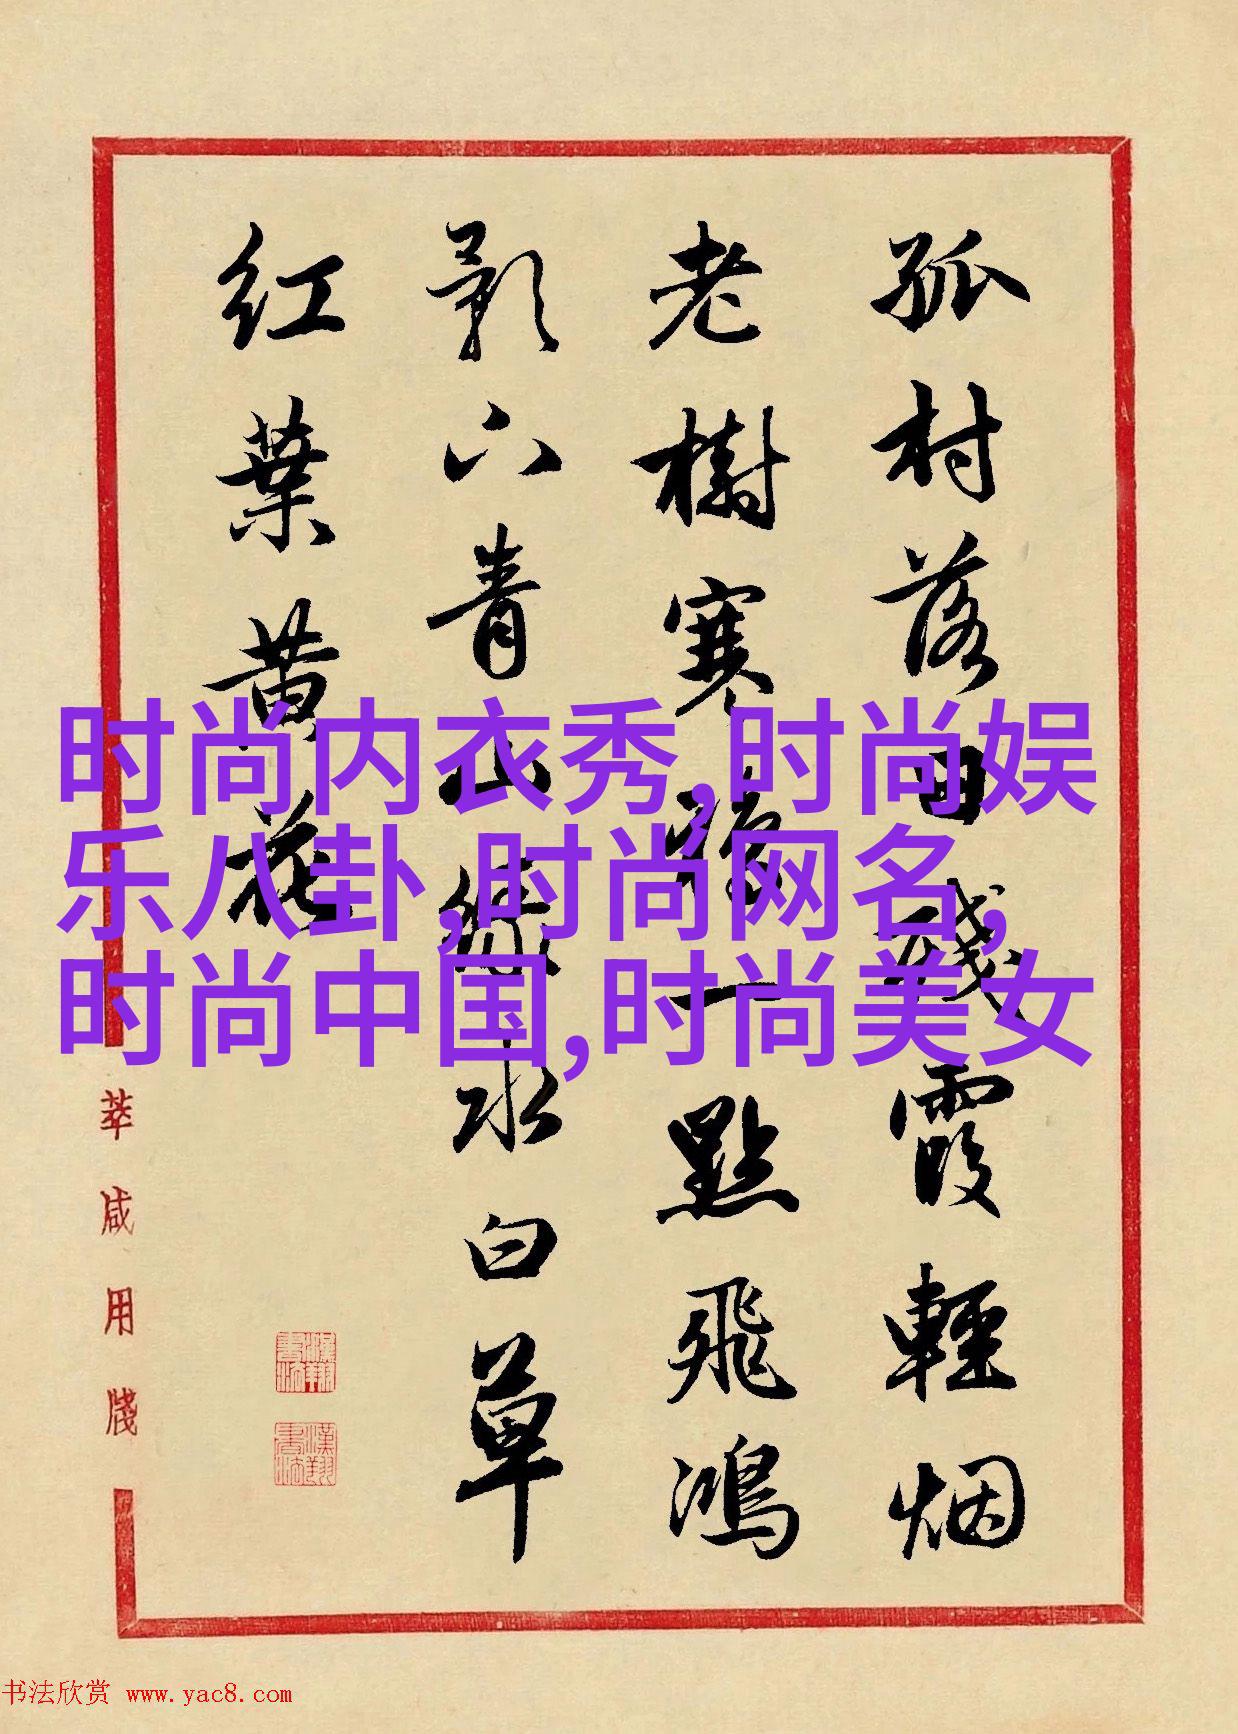 孤村落日残霞輕烟
老樹寒鴉一點飛鴻
影下青山緑水白草
红葉黄花
时尚内衣秀,时尚娱
乐八卦,时尚网名,
时尚中国,时尚美女
萃咸用牋
书法欣赏 www.yac8.com